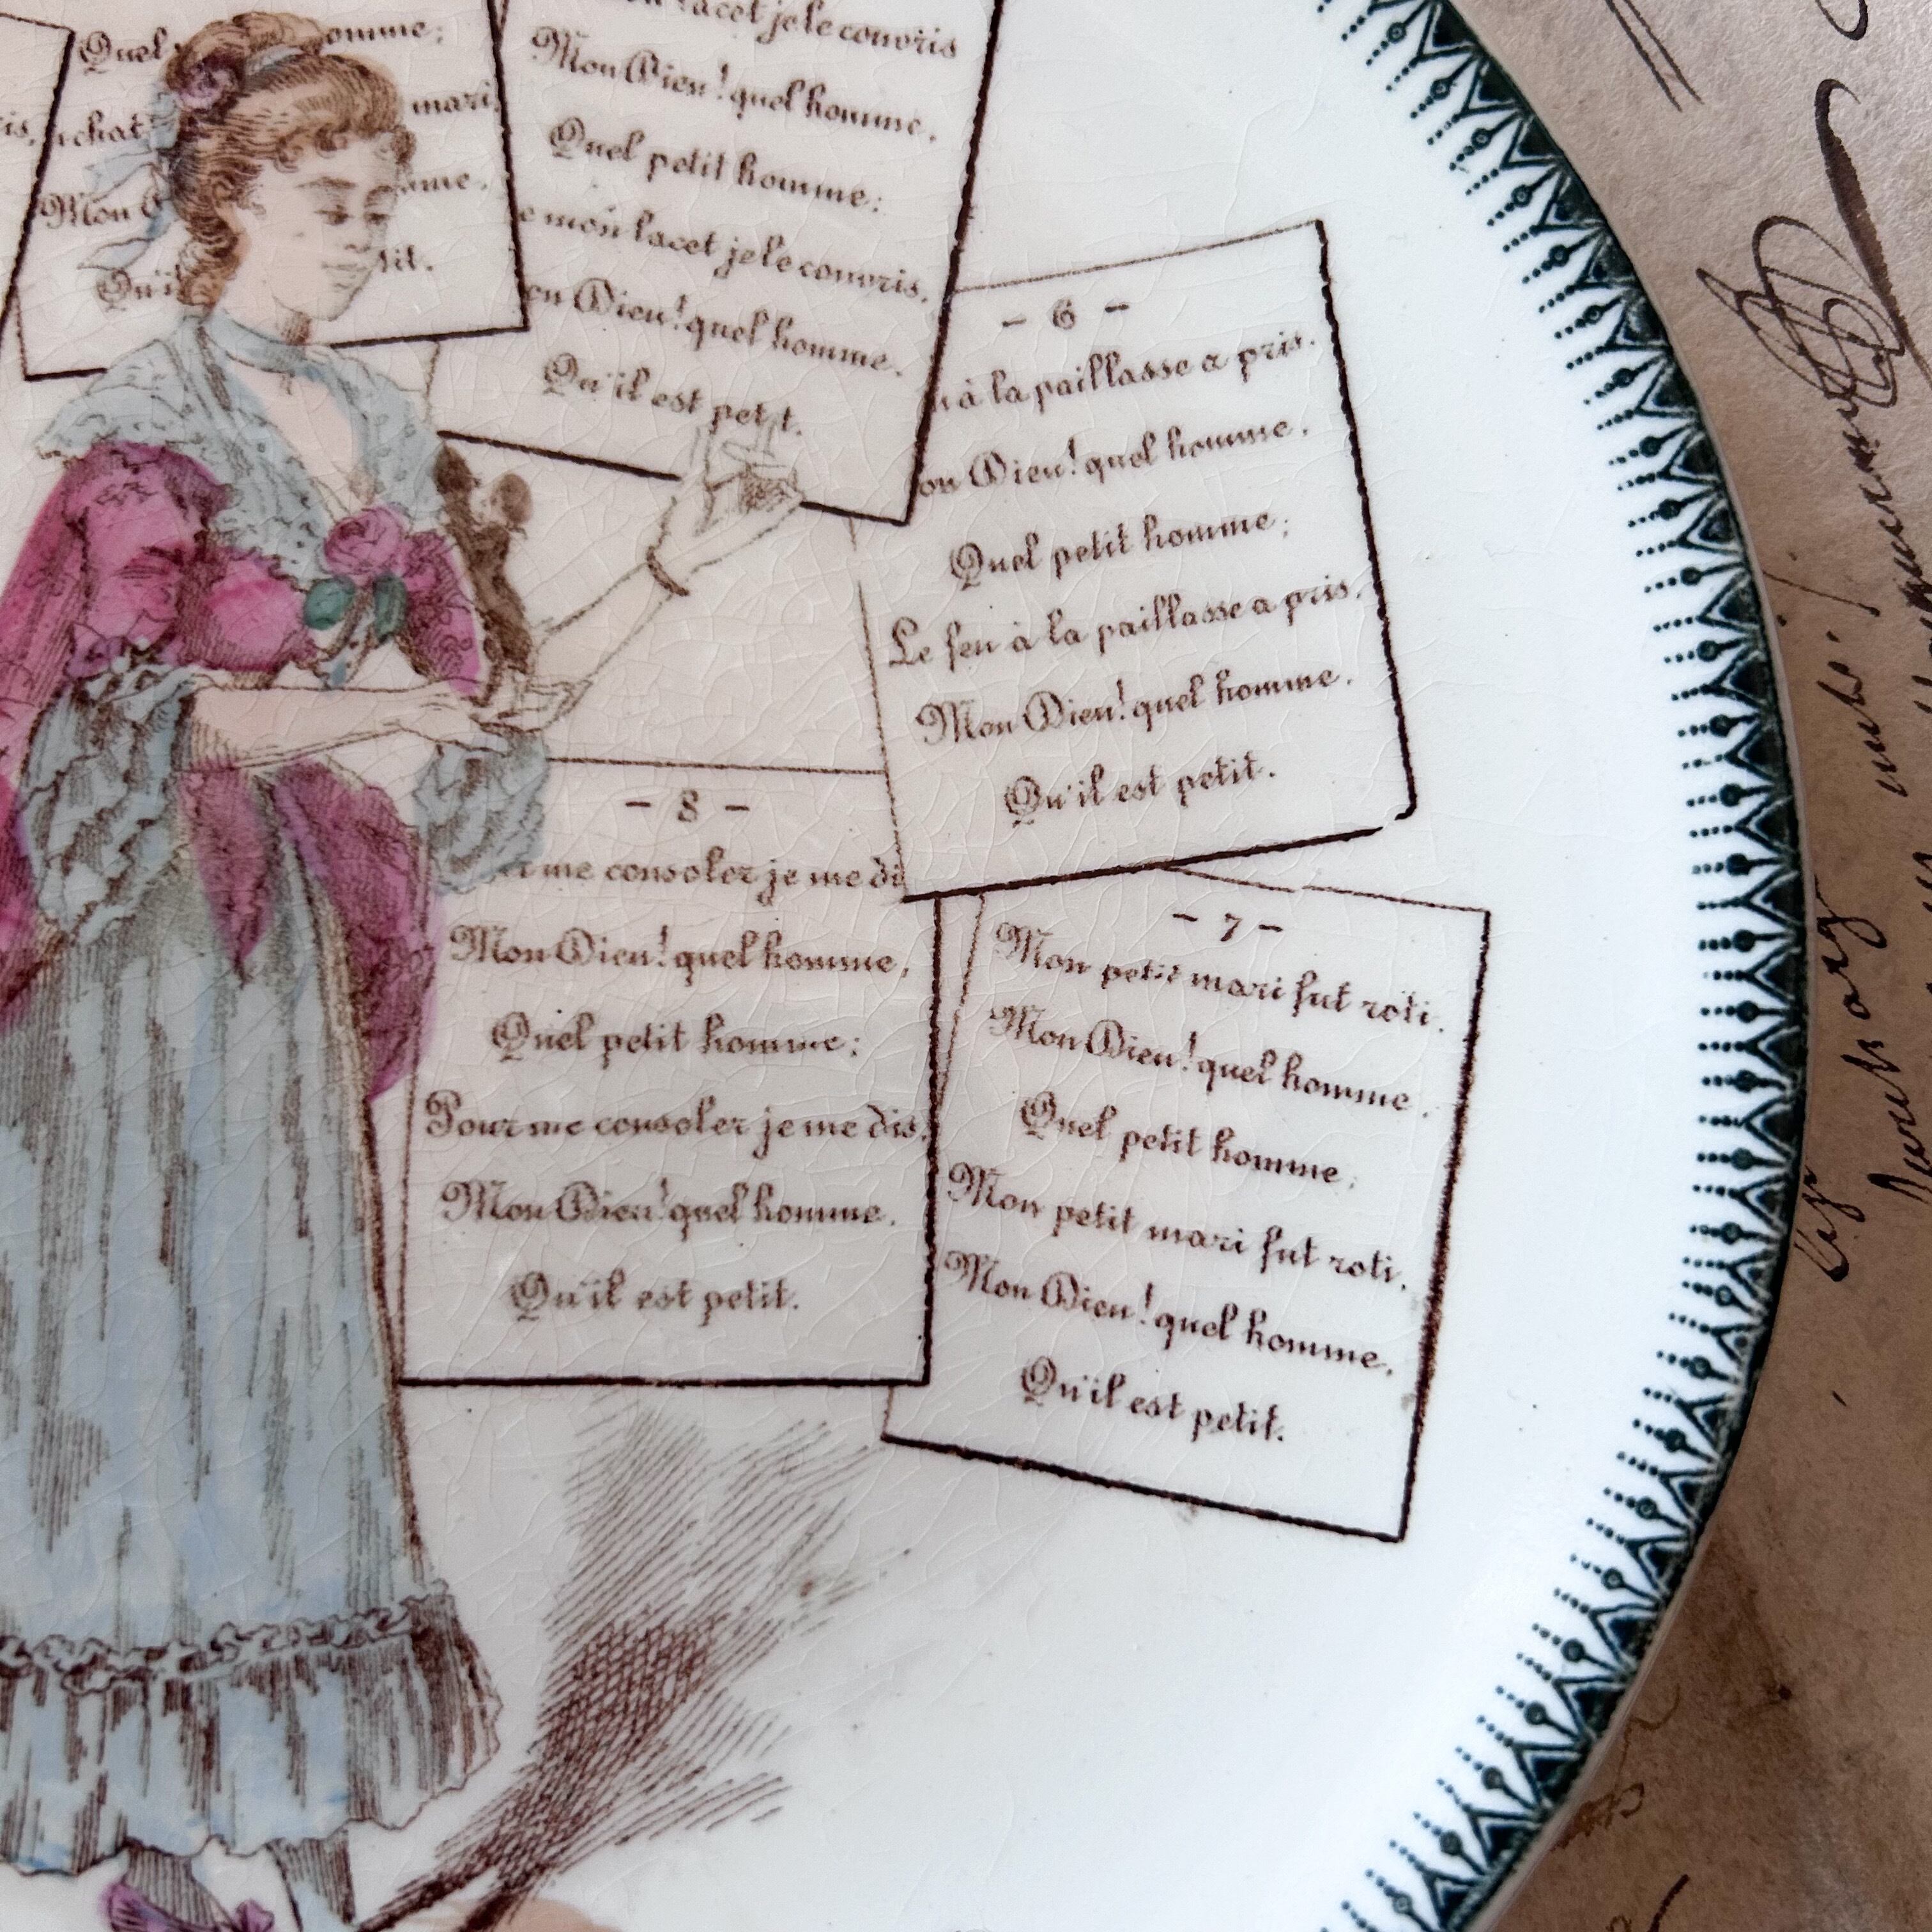 Quel omme;
chat mari
Mon
Qu'il tit.
lacet je le couvris
Mon Dieu! quel homme,
Quel petit homme;
mon lacet je le couvris,
Dieu! quel homme,
Qu'il est petit.
- 6 -
à la paillasse a pris,
Dieu! quel homme,
Quel petit homme;
Le feu à la paillasse a pris,
Mon Dieu! quel homme,
Qu'il est petit.
- 7 -
Mon petit mari fut roti,
Mon Dieu! quel homme,
Quel petit homme;
Mon petit mari fut roti,
Mon Dieu! quel homme,
Qu'il est petit.
- 8 -
me consoler je me di
Mon Dieu! quel homme,
Quel petit homme;
Pour me consoler je me dis,
Mon Dieu! quel homme,
Qu'il est petit.